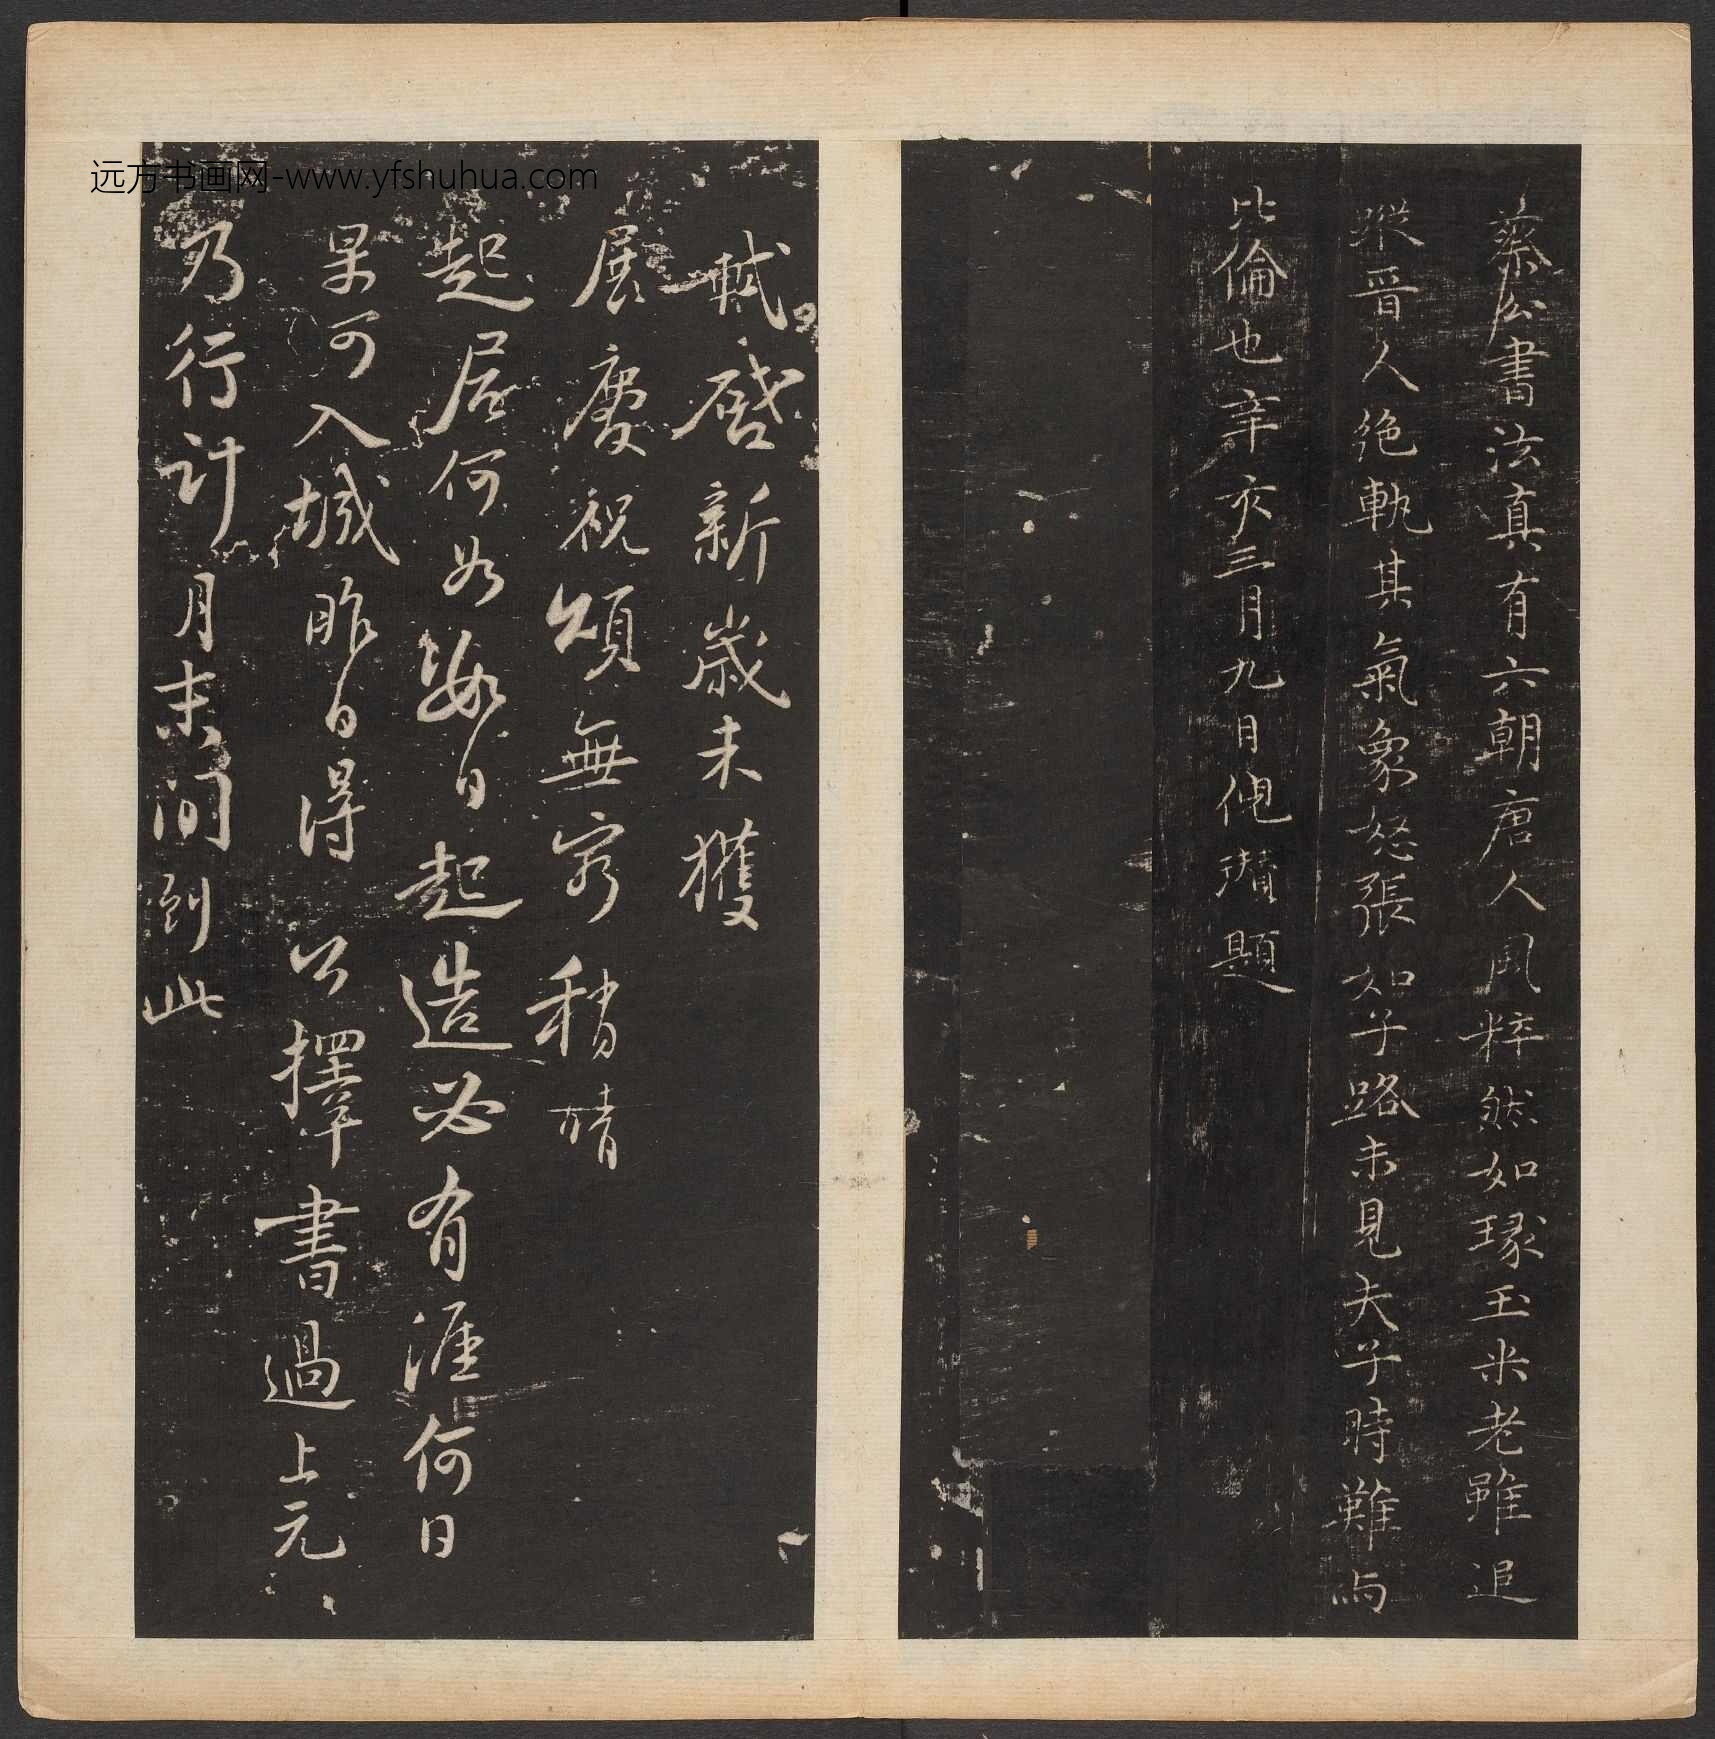 蔡公書法真有六朝唐人風粹然如琢玉米老雖追
蹤晉人絶軌其氣象怒張如子路未見夫子時難与
比倫也辛亥三月九日倪瓚題
軾啓新歲未獲
展慶祝頌無窮稍晴
起居何如數日起造必有涯何日
果可入城昨日得公擇書過上元
乃行計月末間到此
远方书画网-www.yfshuhua.com